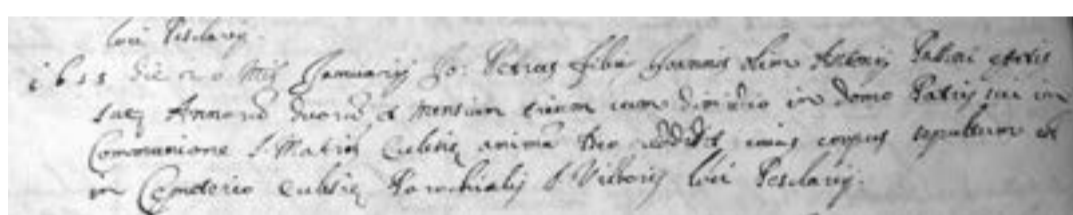 loci Pesclarij.
1655 die 20 Mẽs Januarij Jo: Petrus filius Joannis olim Antonij Patini etatis
suẹ Annorũ duorũ et mensium trium cum dimidio in domo Patris sui in
Communione S. Matris Ecclesiẹ animã Deo reddidit cuius corpus sepultum est
in Cemeterio Ecclesiẹ Parochialis S. Victoris loci Pesclarij.